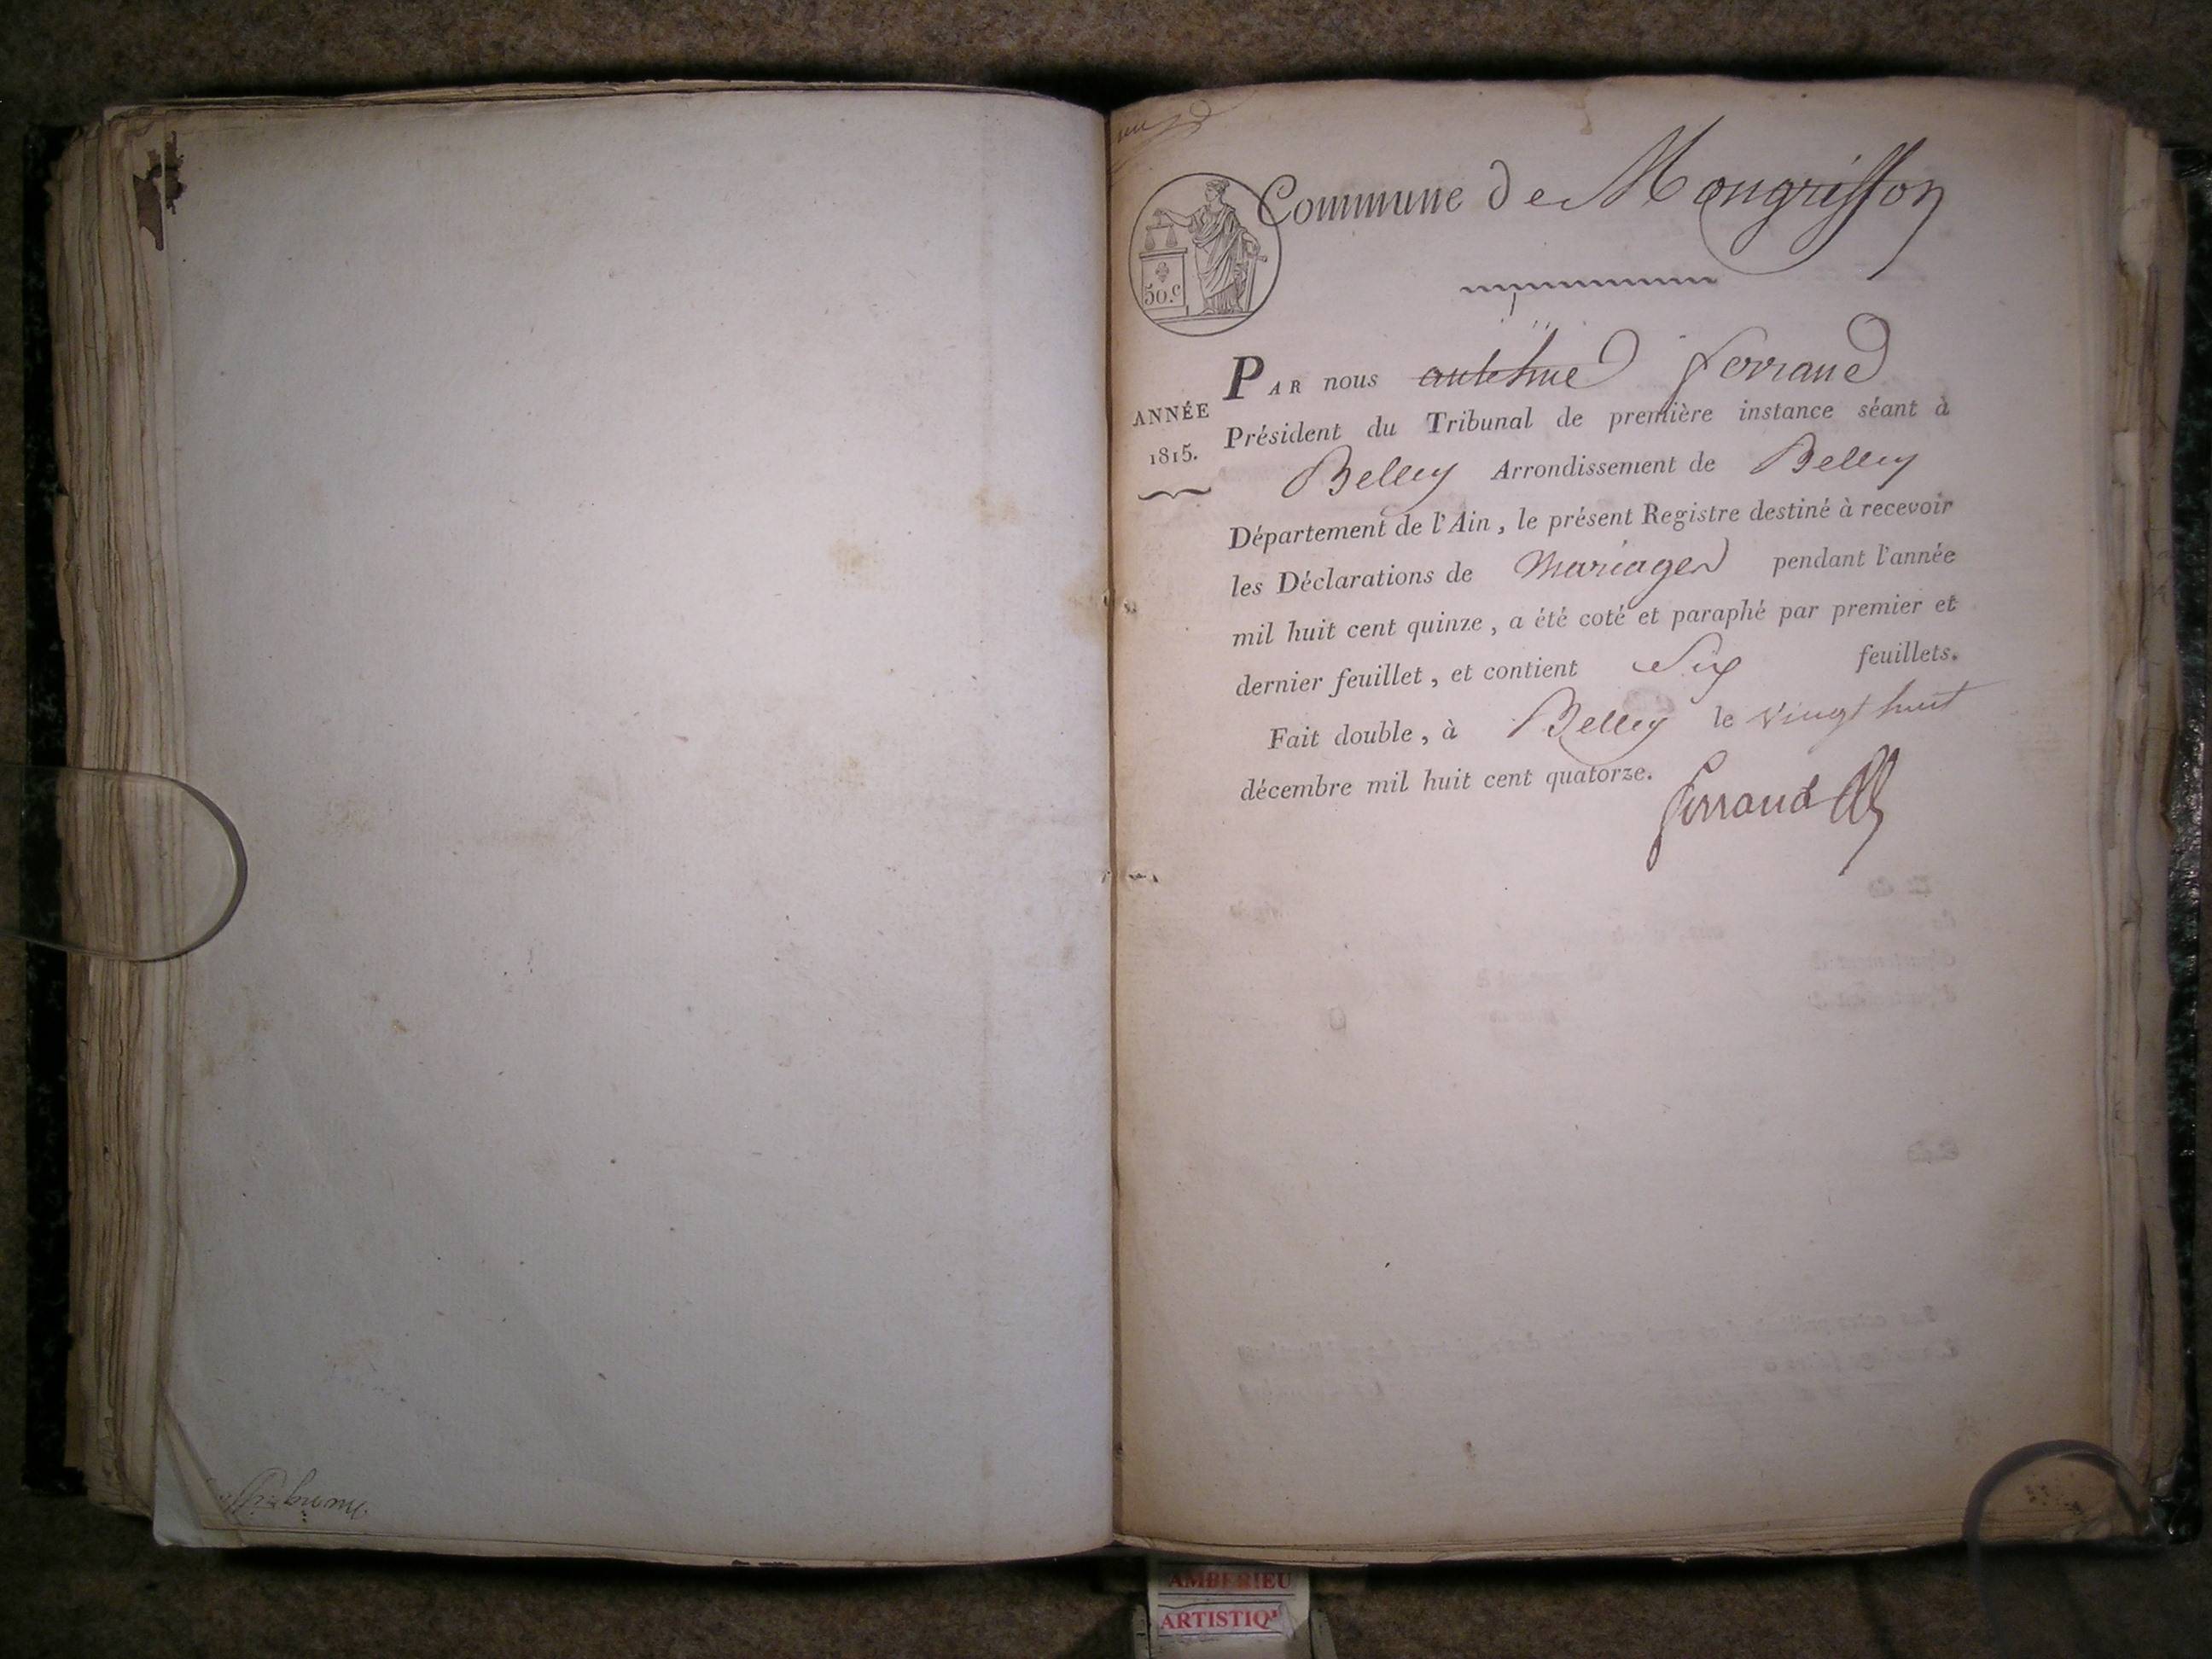 Commune de Mongriffon
50.c
PAR nous antehme ferrand
ANNÉE
1815.
Président du Tribunal de première instance séant à
Belley Arrondissement de Belley
Département de l'Ain, le présent Registre destiné à recevoir
les Déclarations de Mariages pendant l'année
mil huit cent quinze, a été coté et paraphé par premier et
dernier feuillet, et contient Six feuillets.
Fait double, à Belley le vingt huit
décembre mil huit cent quatorze.
ferrand
AMBERIEU
ARTISTIQ